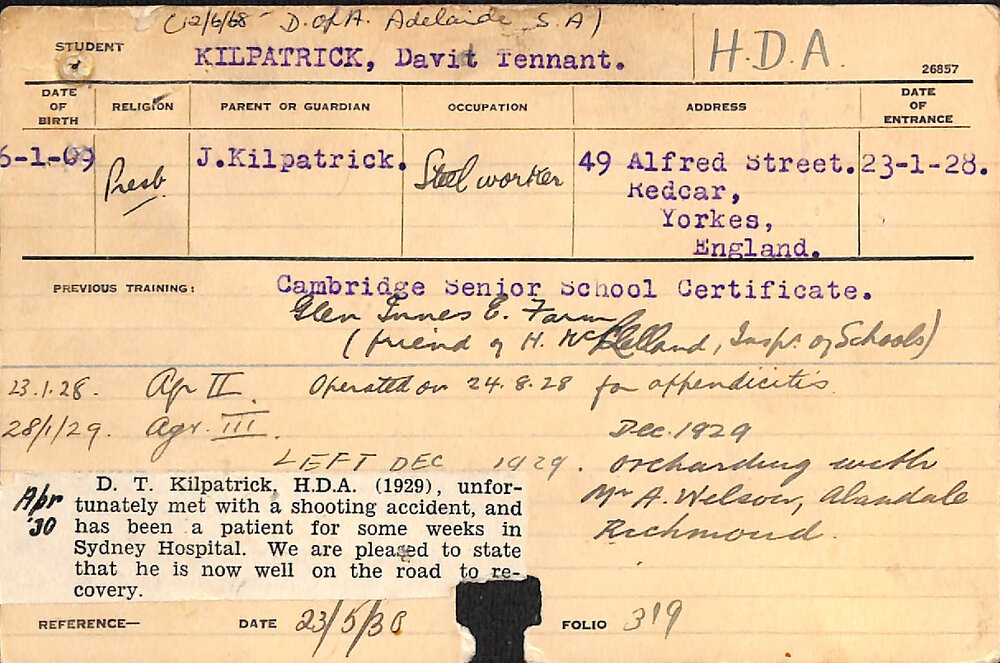 (12/6/68 - D. of A. Adelaide S.A)
STUDENT
KILPATRICK, Davit Tennant.
H.D.A.
26857
DATE OF BIRTH
RELIGION
PARENT OR GUARDIAN
OCCUPATION
ADDRESS
DATE OF ENTRANCE
6-1-09
Presb.
J.Kilpatrick.
Steel worker
49 Alfred Street.
23-1-28.
Redcar,
Yorkes,
England.
PREVIOUS TRAINING:
Cambridge Senior School Certificate.
Glen Innes E. Farm
(friend of H. McClelland, Insp. of Schools)
23.1.28. Agr II. Operated on 24.8.28 for appendicitis
28/1/29. Agr. III.
LEFT DEC 1929.
Dec. 1929
orcharding with
Mr A.
Richmond.
Apr '30
D. T. Kilpatrick, H.D.A. (1929), unfor-
tunately met with a shooting accident, and
has been a patient for some weeks in
Sydney Hospital. We are pleased to state
that he is now well on the road to re-
covery.
REFERENCE—
DATE 23/5/30
FOLIO 319